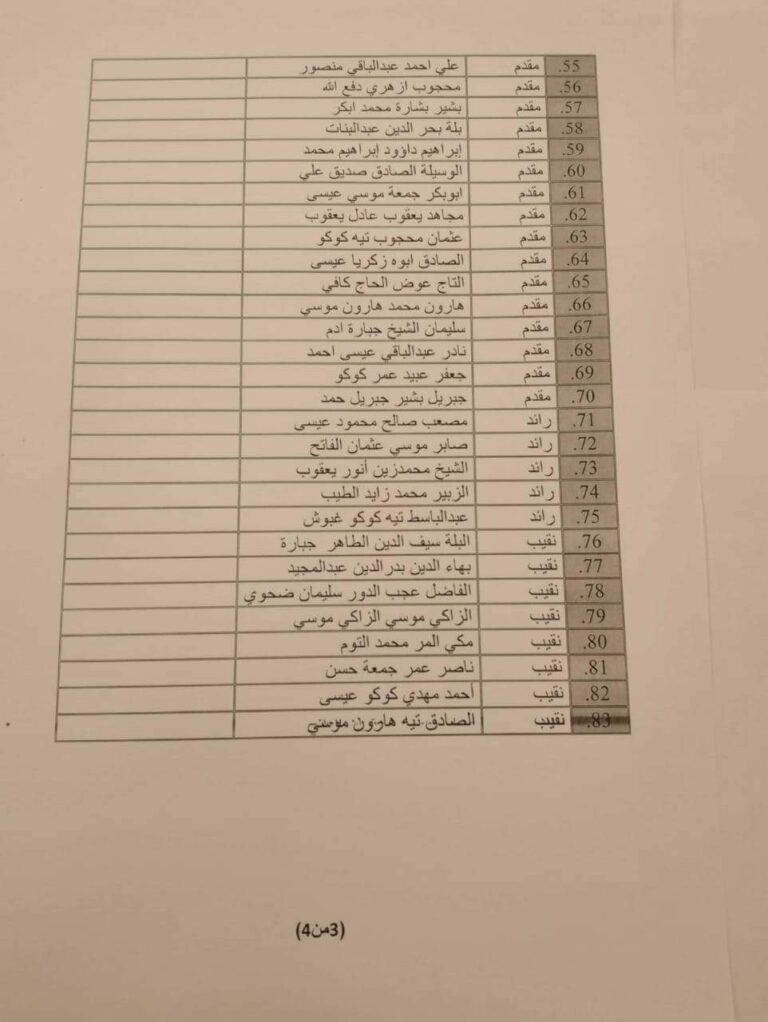 55. مقدم علي احمد عبدالباقي منصور
56. مقدم محجوب ازهري دفع الله
57. مقدم بشير بشارة محمد ابكر
58. مقدم بلة بحر الدين عبدالبنات
59. مقدم إبراهيم داؤود إبراهيم محمد
60. مقدم الوسيلة الصادق صديق علي
61. مقدم ابوبكر جمعة موسي عيسى
62. مقدم مجاهد يعقوب عادل يعقوب
63. مقدم عثمان محجوب تيه كوكو
64. مقدم الصادق ابوه زكريا عيسى
65. مقدم التاج عوض الحاج كافي
66. مقدم هارون محمد هارون موسي
67. مقدم سليمان الشيخ جبارة ادم
68. مقدم نادر عبدالباقي عيسى احمد
69. مقدم جعفر عبيد عمر كوكو
70. مقدم جبريل بشير جبريل حمد
71. رائد مصعب صالح محمود عيسى
72. رائد صابر موسي عثمان الفاتح
73. رائد الشيخ محمدزين أنور يعقوب
74. رائد الزبير محمد زايد الطيب
75. رائد عبدالباسط تيه كوكو غبوش
76. نقيب البلة سيف الدين الطاهر جبارة
77. نقيب بهاء الدين بدرالدين عبدالمجيد
78. نقيب الفاضل عجب الدور سليمان ضحوي
79. نقيب الزاكي موسي الزاكي موسي
80. نقيب مكي المر محمد التوم
81. نقيب ناصر عمر جمعة حسن
82. نقيب احمد مهدي كوكو عيسى
83. نقيب الصادق تيه هارون موسي
(3من4)